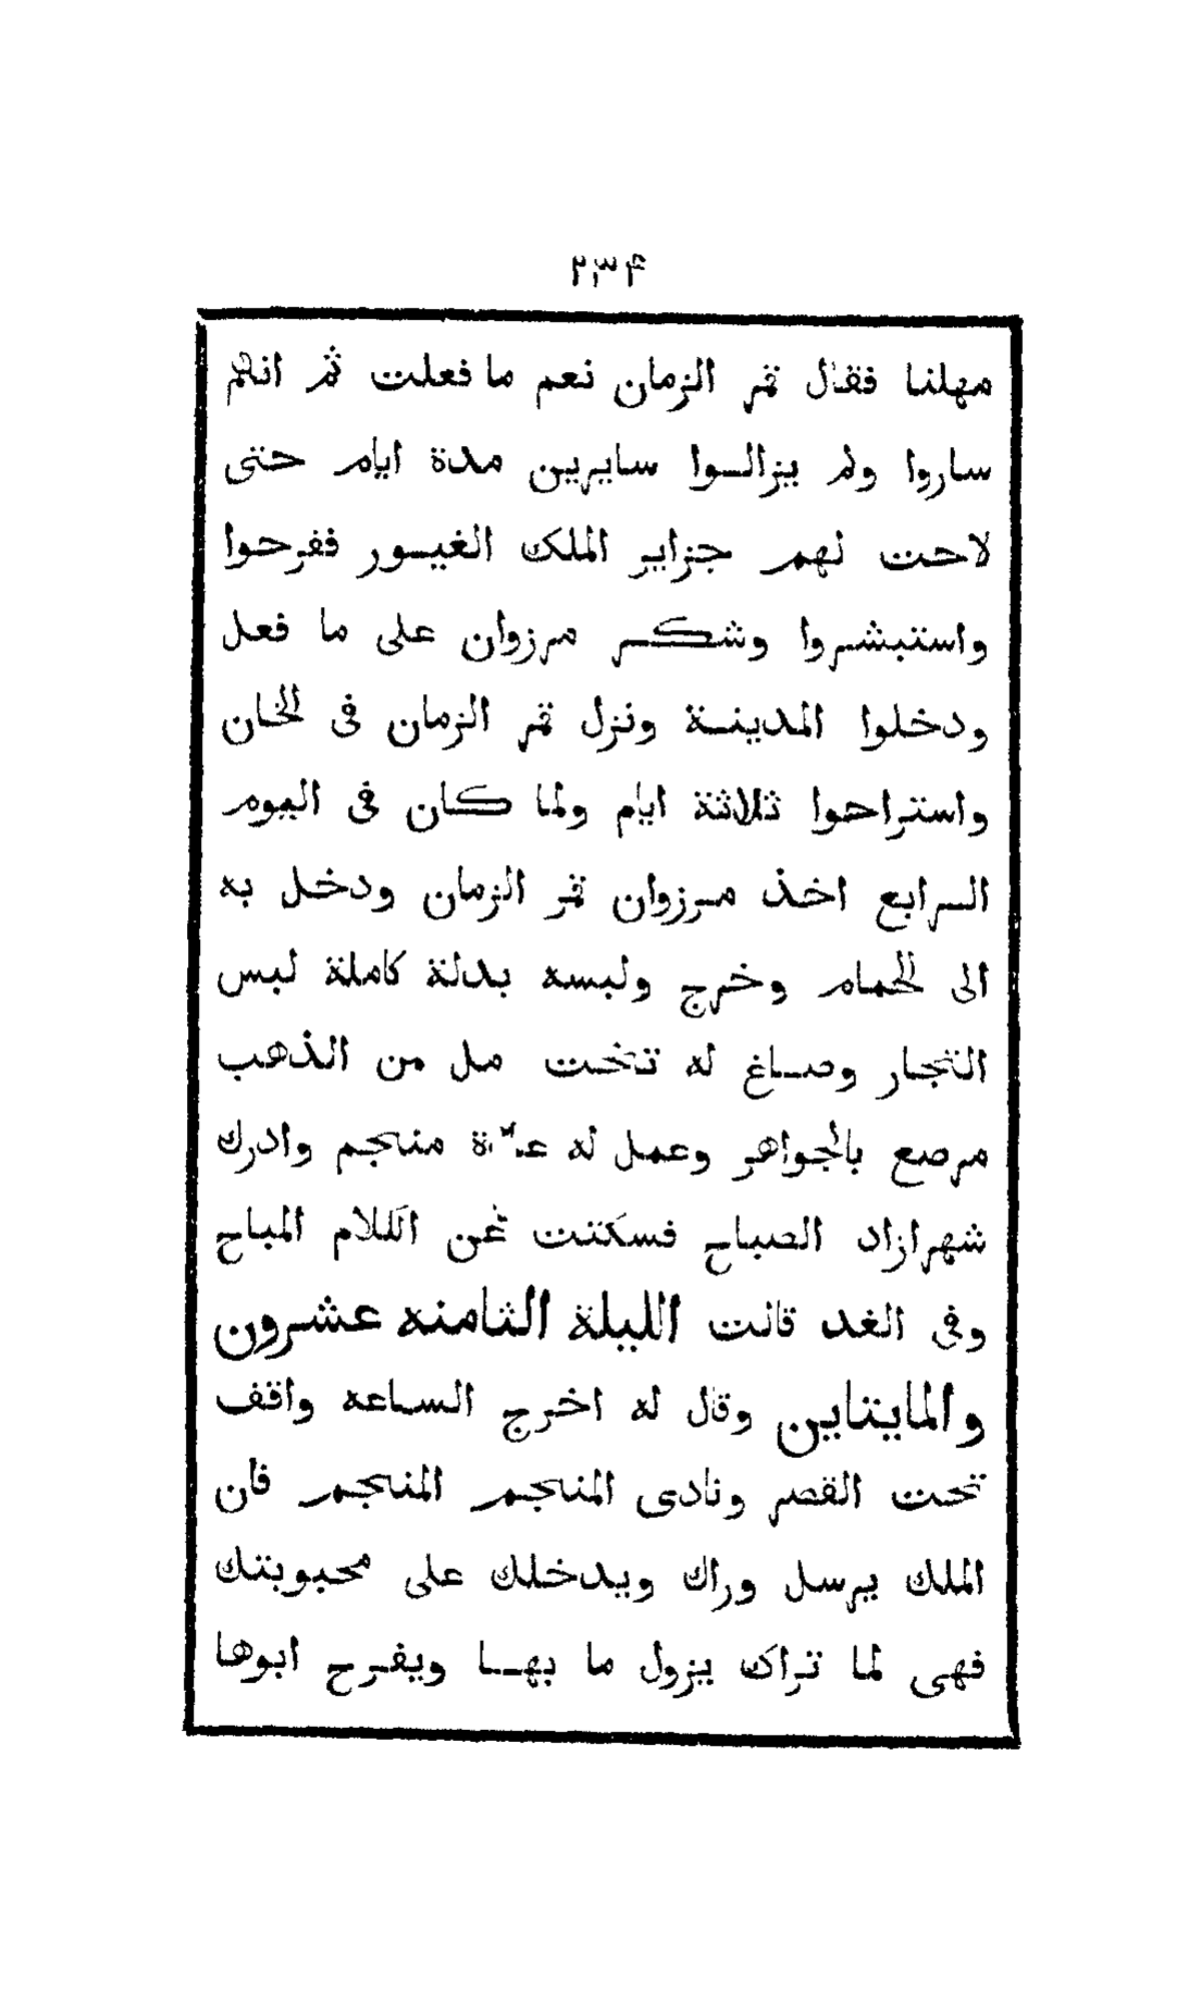 ٢٣۴
مهلنا فقال قمر الزمان نعم ما فعلت ثم انهم
ساروا ولم يزالوا سايرين مدة ايام حتى
لاحت لهم جزاير الملك الغيور ففرحوا
واستبشروا وشكر مرزوان على ما فعل
ودخلوا المدينة ونزل قمر الزمان فى الخان
واستراحوا ثلاثة ايام ولما كان فى اليوم
الرابع اخذ مرزوان قمر الزمان ودخل به
الى الحمام وخرج ولبسه بدلة كاملة لبس
التجار وصاغ له تخت مل من الذهب
مرصع بالجواهر وعمل له منجم وادرك
شهرازاد الصباح فسكتت عن الكلام المباح
وفى الغد قالت الليلة الثامنه عشرون
والمايتاين وقال له اخرج الساعه واقف
تحت القصر ونادى المنجم المنجم فان
الملك يرسل وراك ويدخلك على محبوبتك
فهى لما تراك يزول ما بها ويفرح ابوها